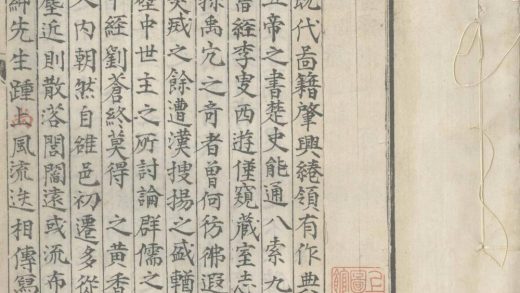 既代啚籍肇興綣領有作典
帝之書楚史能通八索九
經李叟西遊僅窺藏室
禹穴之奇者曾何彷彿遐
之餘遭漢搜揚之盛輶
中世主之所討論群儒之
經劉蒼終莫得 之黃香
入内朝然自雒邑初遷多從
塵近則散落閭閻遠或流布
紳先生踵尚風流迭相傳寫